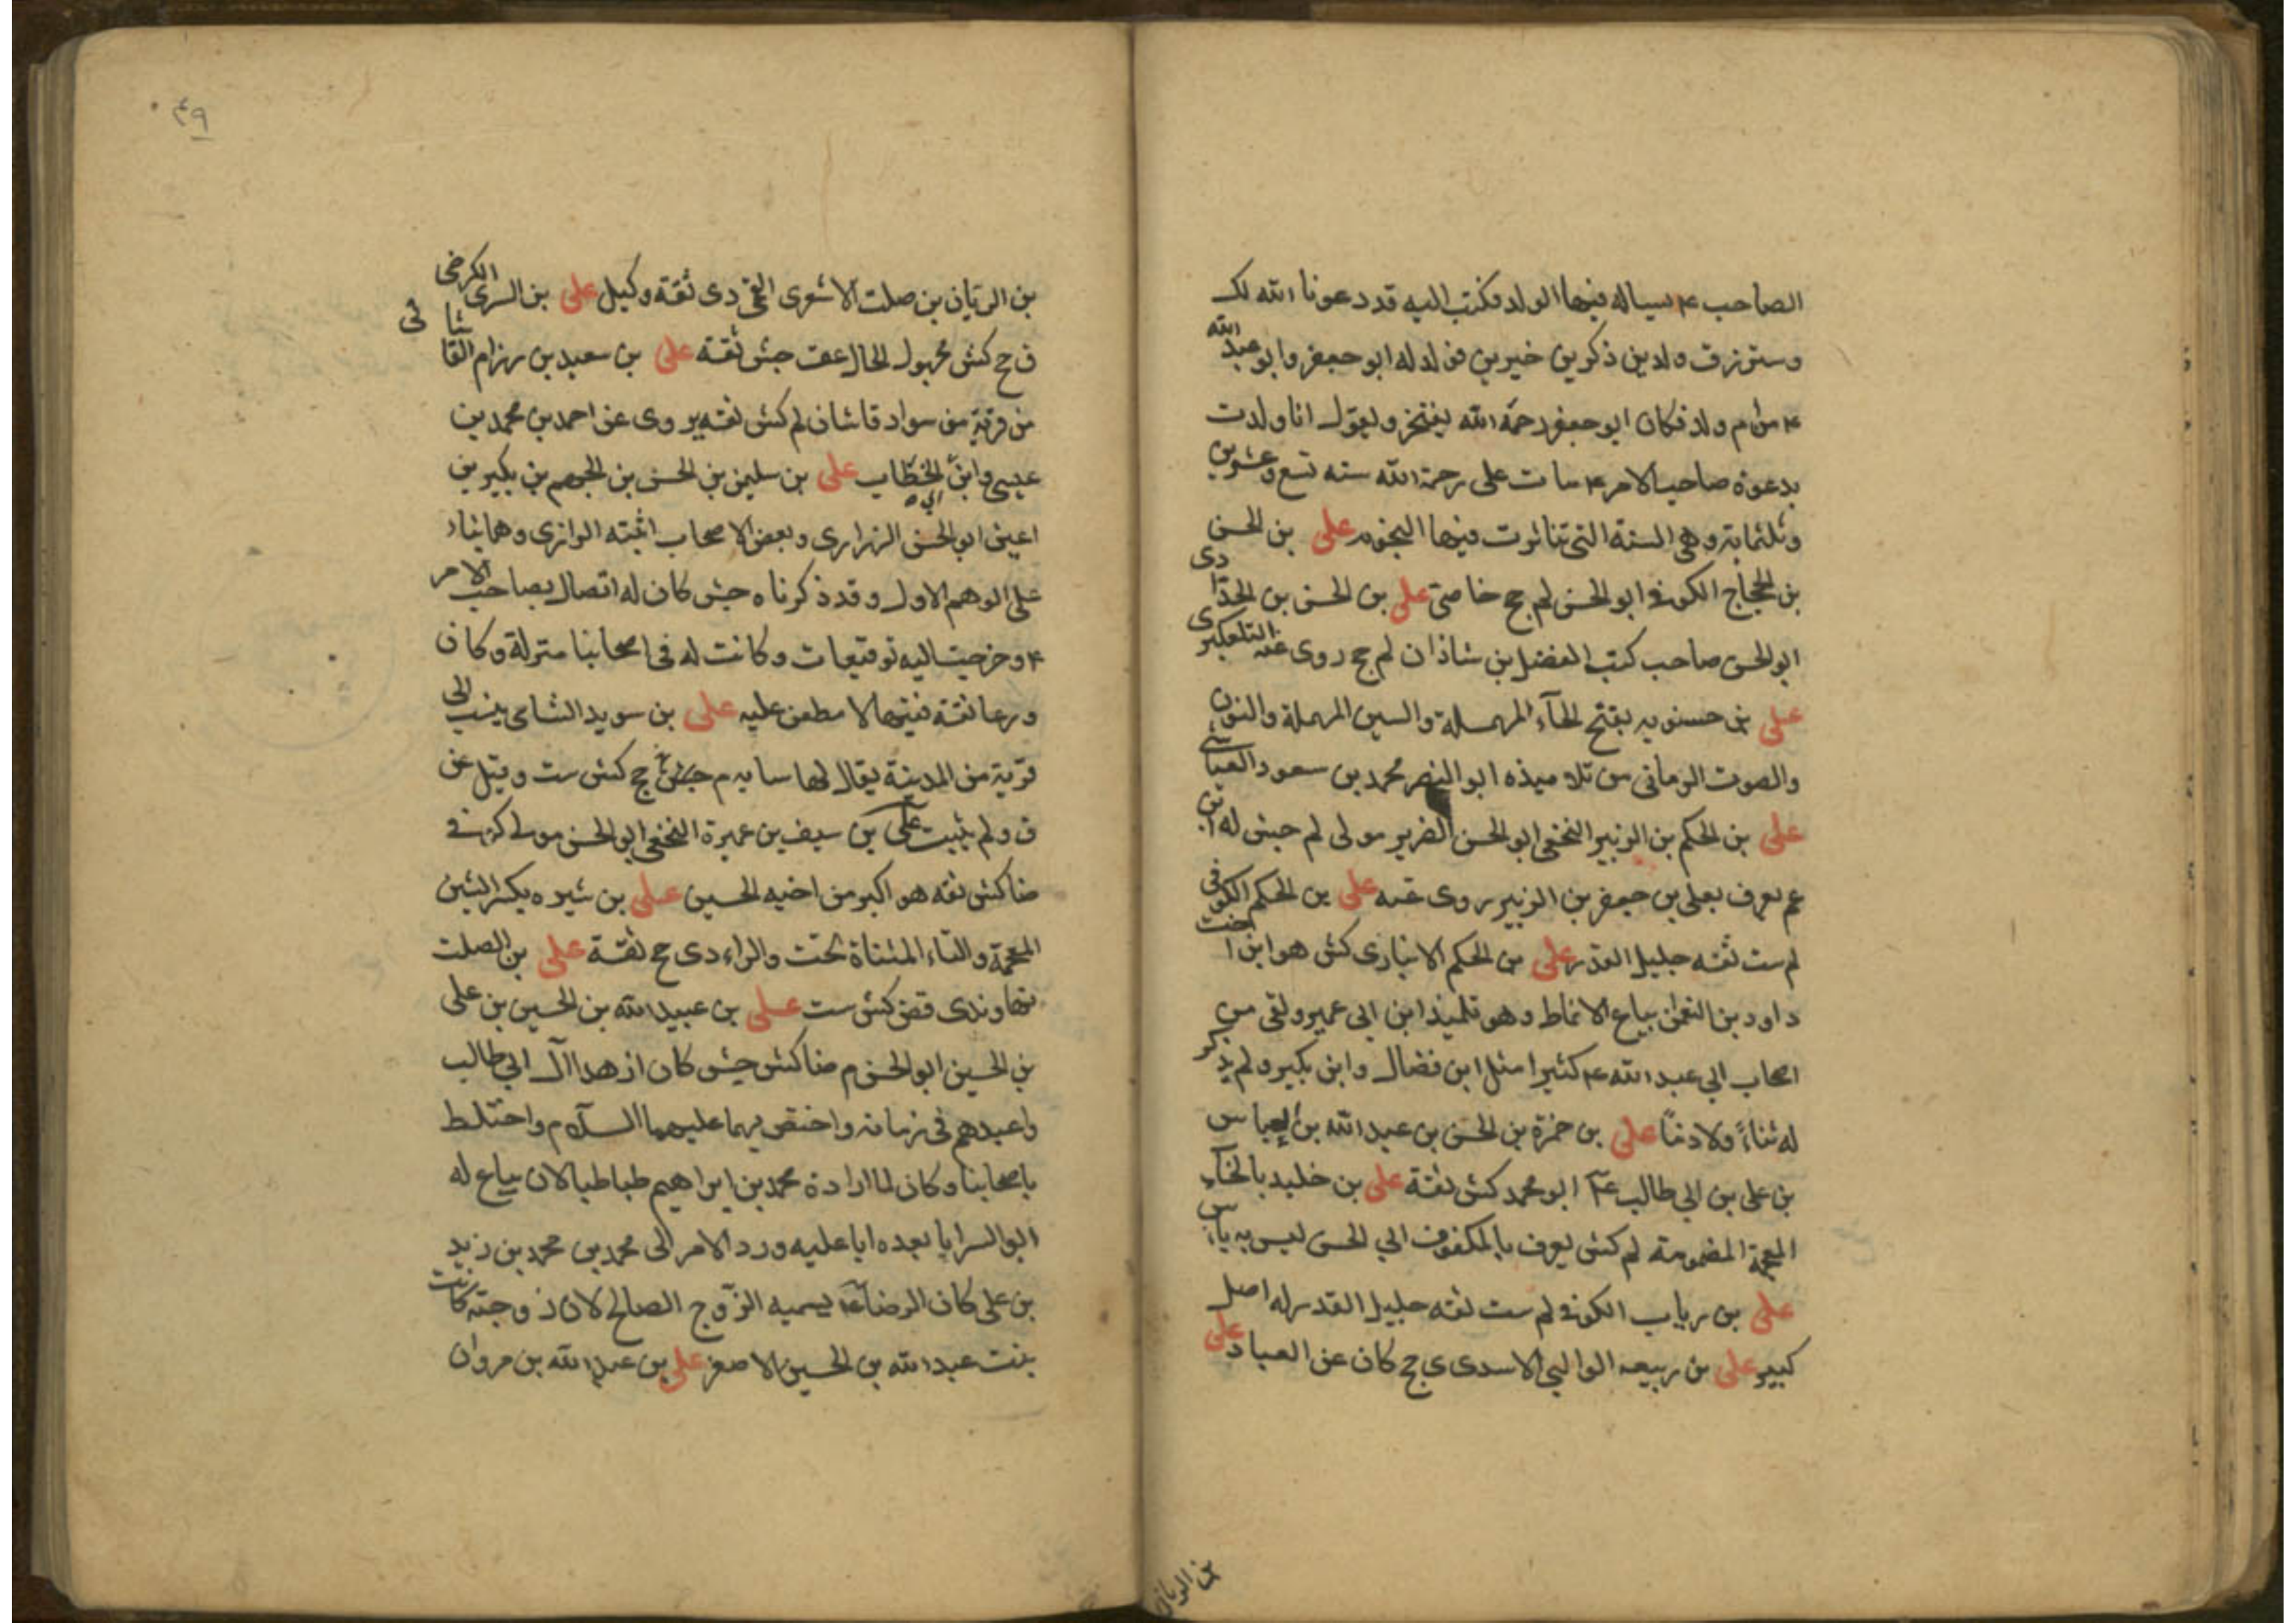 الصاحب ۴ يساله فيها الولد فكتب اليه قد دعونا الله لك
وسترزق ولدين ذكرين خيرين فولد له ابو جعفر وابو عبد الله
۴ من ام ولد فكان ابو جعفر رحمه الله يفتخر ويقول انا ولدت
بدعوة صاحب الامر ۴ مات على رحمة الله سنه تسع وعشرين
وثلثماية وهى السنة التى تناثرت فيها النجوم على بن الحسن
بن الحجاج الكوفى ابو الحسن لم جخ خاصى على بن الحسن بن الحذا دى
ابو الحسن صاحب كتب الفضل بن شاذان لم جخ روى عنه التلعكبرى
على بن حسنويه بفتح الحآء المهملة والسين المهملة والنون
والصوت الرمانى من تلاميذه ابو النصر محمد بن مسعود العياشى
على بن الحكم بن الزبير النخعى ابو الحسن الضرير مولى لم جش له ابن
عم يعرف بعلى بن جعفر بن الزبير روى عنه على بن الحكم الكوفى
لم ست ثقه جليل القدر على بن الحكم الانبارى كش هو ابن اخت
داود بن النعمن بياع الانماط وهو تلميذ ابن ابى عمير ولقى من
اصحاب ابى عبد الله ۴ كثيرا مثل ابن فضال وابن بكير ولم يذكر
له ثناءً ولا ذمًا على بن حمزة بن الحسن بن عبيد الله بن العباس
بن على بن ابي طالب ۴ ابو محمد كش ثقة على بن خليد بالخآء
المعجمة المضمومة لم كش يعرف بالمكفوف ابى الحسن ليس به باس
على بن رياب الكوفى لم ست ثقه جليل القدر له اصل
كبير على بن ربيعه الوالبى الاسدى ى جخ كان من العباد على
بن الريان
۴۹
بن الريان بن صلت الاشعرى القمى دى ثقة وكيل على بن السرى الكرخى
ق جخ كش مجهول الحال عقـ جش ثقة على بن سعيد بن رزام القاشانى
من قرية من سواد قاشان لم كش ثقه يروى عن احمد بن محمد بن
عيسى وابن ابى الخطاب على بن سليمن بن الحسن بن الجهم بن بكير بن
اعين ابو الحسن الزرارى وبعض الاصحاب اثبته الرازى وهما بناء
على الوهم الاول وقد ذكرناه جش كان له اتصال بصاحب الامر
۴ وخرجت اليه توقيعات وكانت له فى اصحابنا منزلة وكان
ورعا ثقة فقيها لا مطعن عليه على بن سويد الشامى ينسب الى
قرية من المدينة يقال لها سايه م جش جخ كش ست وقيل عن
ق ولم يثبت على بن سيف بن عميرة النخعى ابو الحسن مولى كوفى
ضا كش ثقه هو اكبر من اخيه الحسين على بن شيره بكسر الشين
المعجمة والياء المثناة تحت والراء دى جخ ثقة على بن الصلت
نهاوندى قض كش ست على بن عبيد الله بن الحسين بن على
بن الحسين ابو الحسن م ضا كش جش كان ازهد آل ابى طالب
واعبدهم فى زمانه واختص بهما عليهما السلام واختلط
باصحابنا وكان لما اراده محمد بن ابراهيم طباطبا لان يبايع له
ابو السرايا بعده ابا عليه ورد الامر الى محمد بن محمد بن زيد
بن على كان الرضا ۴ يسميه الزوج الصالح لان زوجته كانت
بنت عبد الله بن الحسين الاصغر على بن عبد الله بن مروان